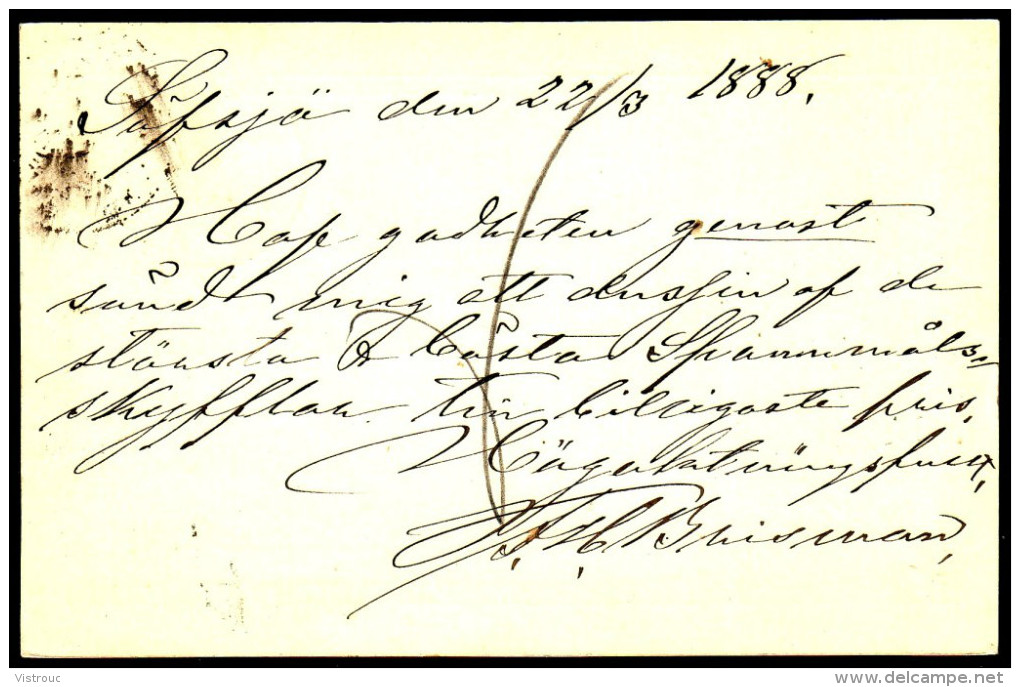 Säfsjö den 22/3 1888.
Haf godheten genast
sänd mig ett dussin af de
största & bästa Spannmåls-
skyfflar till billigaste pris.
Högaktningsfullt,
J. H. Brisman
Vistrouc
delcampe.net